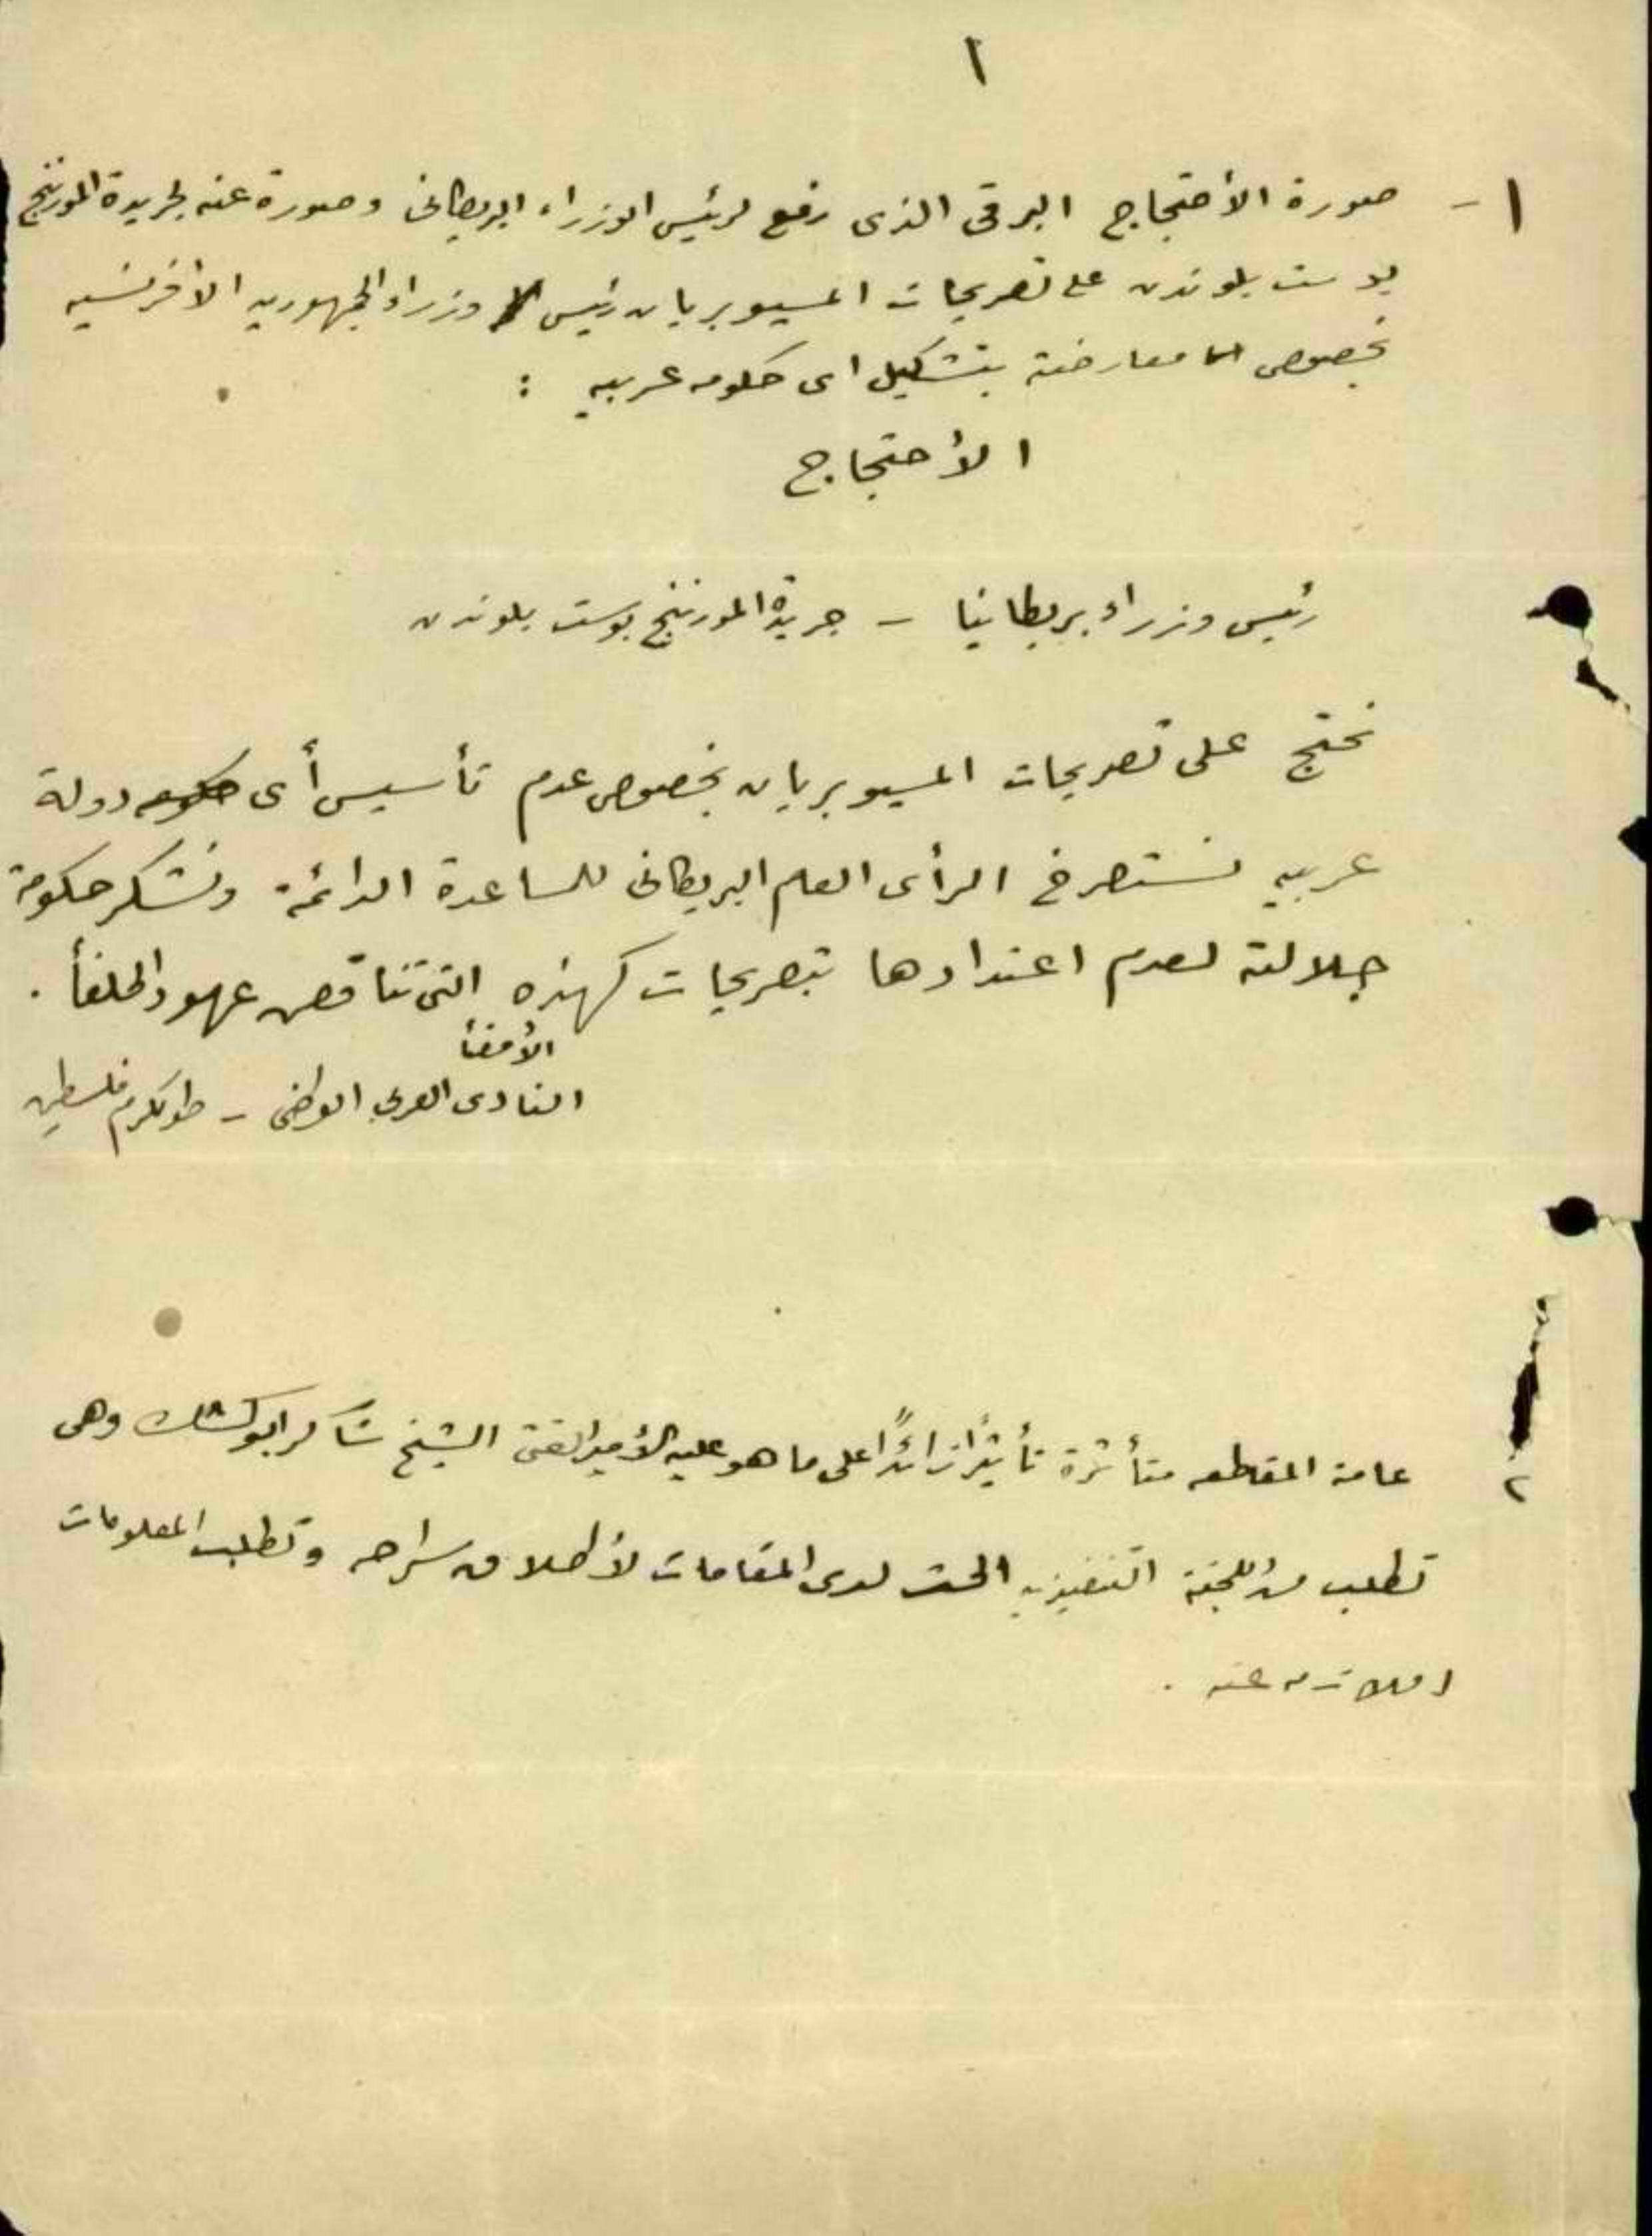 ١
١- صورة الأحتجاج البرقى الذى رفع لرئيس الوزراء البريطانى وصورة عنه لجريدة المورننج
بوست بلوندن على تصريحات المسيو بريان رئيس وزراء الجمهوريه الافرنسيه
بخصوص معارضته بتشكيل اى حكومه عربيه :
الأحتجاج
رئيس وزراء بريطانيا - جريدة المورننج بوست بلوندن
نحتج على تصريحات المسيو بريان بخصوص عدم تأسيس أى دولة
عربيه نستصرخ الرأى العام البريطانى للمساعدة الدائمة ونشكر حكومة
جلالته لعدم اعتدادها بتصريحات كهذه التى تناقض عهود الحلفأ .
الأمضأ
النادى العربي الوطنى - طولكرم فلسطين
٢ عامة المقاطعه متأثرة تأثيراً زائداً على ما هو عليه الشيخ شاكر ابو كشك وهى
تطلب من اللجنة التنفيذيه لدى المقامات لأطلاق سراحه وتطلب المعلومات
عنه .